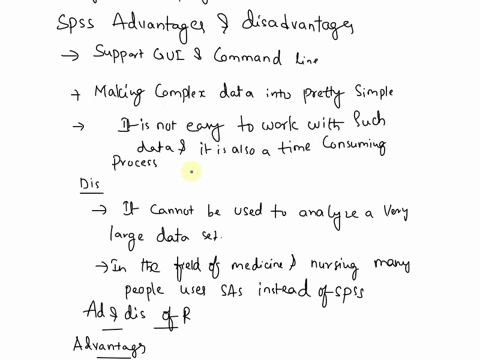 Spss Advantages & disadvantages
→ Support GUI & Command line
→ Making Complex data into pretty Simple
→ It is not easy to work with Such
data & it is also a time Consuming
Process
Dis
→ It Cannot be used to analyze a Very
large data set.
→ In the field of medicine & nursing many
people uses SAS instead of SPSS
Ad & dis of R
Advantags